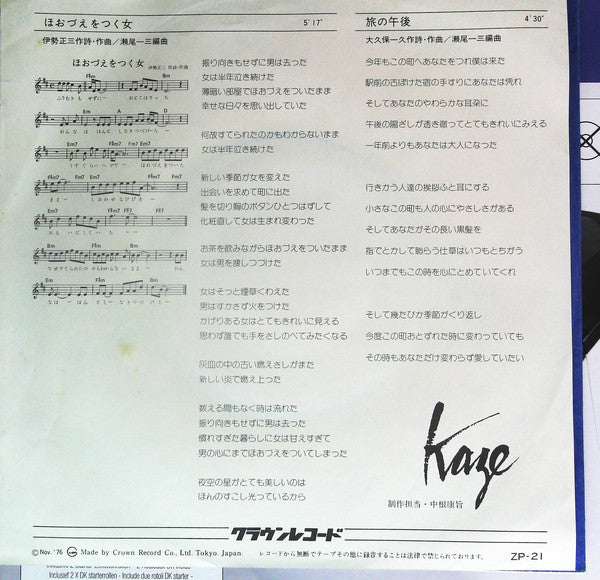 ほおづえをつく女 5′17″
伊勢正三作詩・作曲／瀬尾一三編曲
ほおづえをつく女
伊勢正三 作詩・作曲
振り向きもせずに男は去った
女は半年泣き続けた
薄暗い部屋でほおづえをついたまま
幸せな日々を思い出していた
何故すてられたのかもわからないまま
女は半年泣き続けた
新しい季節が女を変えた
出会いを求めて町に出た
髪を切り胸のボタンひとつはずして
化粧直して女は生まれ変わった
お茶を飲みながらほおづえをついたまま
女は男を捜しつづけた
女はそっと煙草くわえた
男はすかさず火をつけた
かげりある女はとてもきれいに見える
思わず誰でも手をさしのべてみたくなる
灰皿の中の古い燃えさしがまた
新しい炎で燃え上った
数える間もなく時は流れた
振り向きもせずに男は去った
慣れすぎた暮らしに女は甘えすぎて
男の心にまでほおづえをついてしまった
夜空の星がとても美しいのは
ほんのすこし光っているから
旅の午後 4′30″
大久保一久作詩・作曲／瀬尾一三編曲
今年もこの町へあなたをつれ僕は来た
駅前の古ぼけた宿の手すりにあなたは凭れ
そしてあなたのやわらかな耳朶に
午後の陽ざしが透き徹ってとてもきれいにみえる
一年前よりもあなたは大人になった
行きかう人達の挨拶ふと耳にする
小さなこの町も人の心にやさしさがある
そしてあなたがその長い黒髪を
指でとかして眺らう仕草はいつもとちがう
いつまでもこの時を心にとめていてくれ
そして幾たびか季節がくり返し
今度この町おとずれた時に変わっていても
その時もあなただけ変わらず愛していたい
Kaze
制作担当・中根康旨
クラウンレコード
Ⓒ Nov. '76 Made by Crown Record Co., Ltd. Tokyo, Japan. レコードから無断でテープその他に録音することは法律で禁じられております。 ZP-21
Inclusief 2 X DK starterrollen - Include due rotoli DK starter -